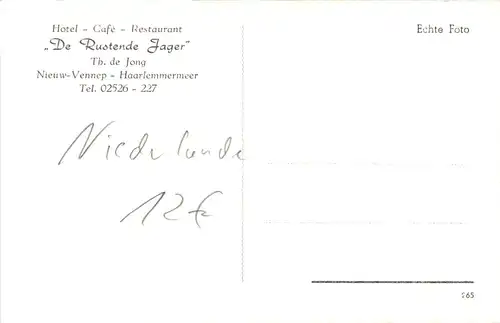 Hotel - Café - Restaurant
„De Rustende Jager"
Th. de Jong
Nieuw-Vennep - Haarlemmermeer
Tel. 02526 - 227
Echte Foto
Niederlande
12€
265